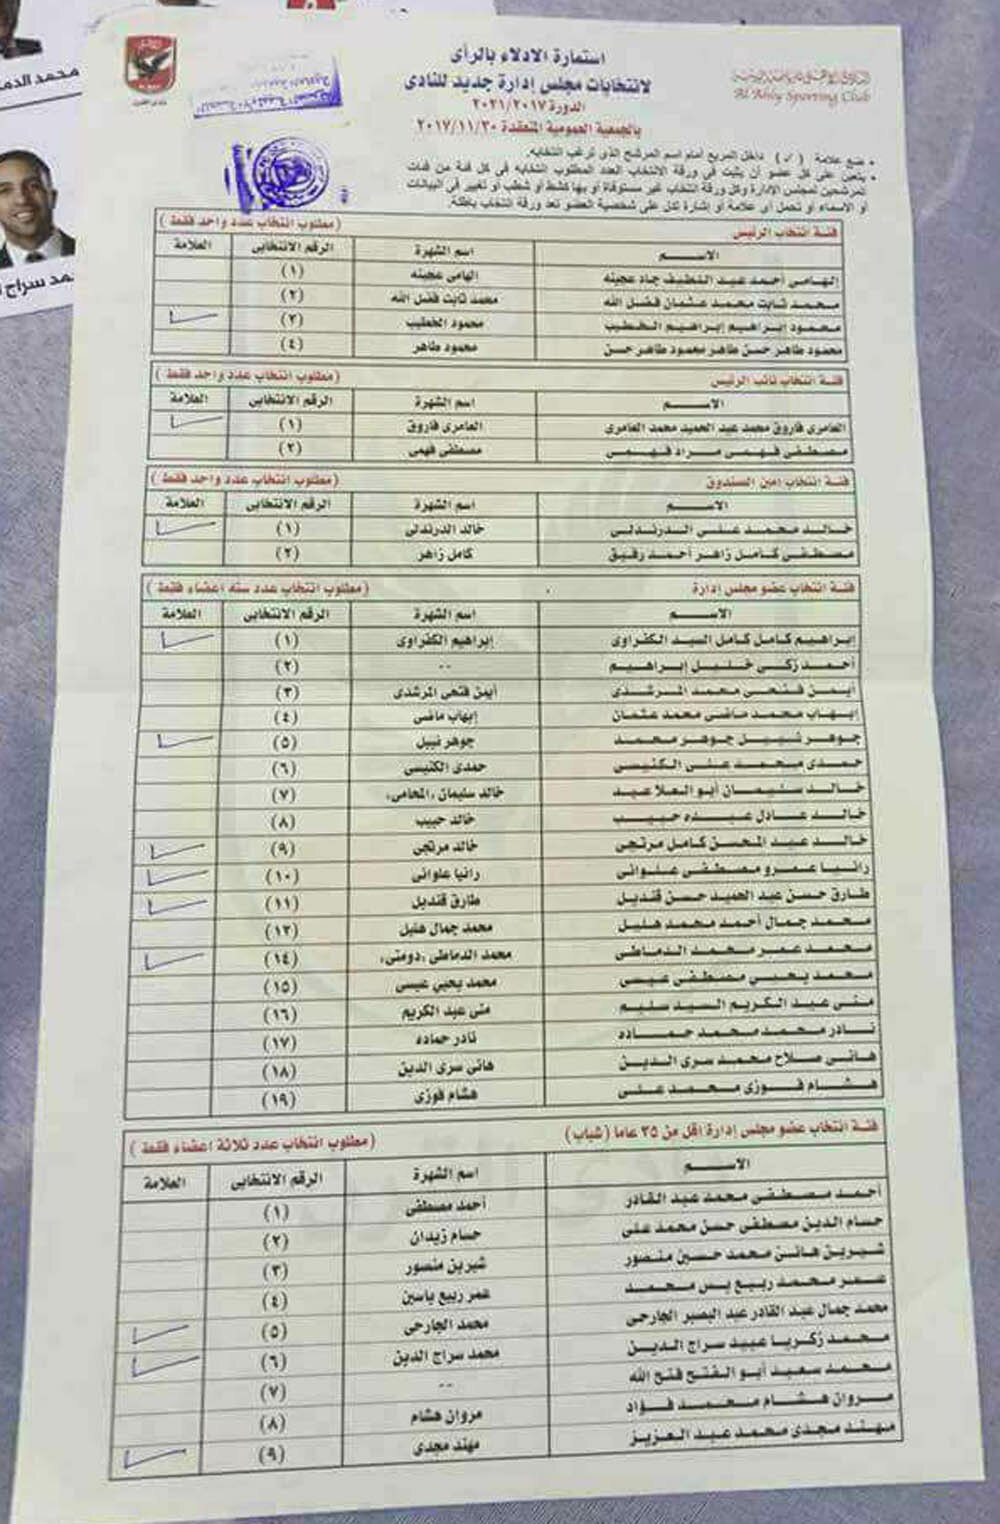 محمد الدما
مد سراج ا
استمارة الادلاء بالرأى
لانتخابات مجلس إدارة جديد للنادى
الدورة ٢٠٢١/٢٠١٧
بالجمعية العمومية المنعقدة ٢٠١٧/١١/٣٠
Al Ahly Sporting Club
• ضع علامة (✓) داخل المربع أمام اسم المرشح الذى ترغب انتخابه.
• يتعين على كل عضو أن يثبت فى ورقة الانتخاب العدد المطلوب انتخابه فى كل فئة من فئات
المرشحين لمجلس الإدارة وكل ورقة انتخاب غير مستوفاة أو بها كشط أو شطب أو تغيير فى البيانات
أو الاسماء أو تحمل أى علامة أو إشارة تدل على شخصية العضو تعد ورقة انتخاب باطلة.
فئة انتخاب الرئيس (مطلوب انتخاب عدد واحد فقط)
الاسم اسم الشهرة الرقم الانتخابى العلامة
إلهامى أحمد عبد اللطيف جاد عجينه الهامى عجينه (١)
محمد ثابت محمد عثمان فضل الله محمد ثابت فضل الله (٢)
محمود إبراهيم إبراهيم الخطيب محمود الخطيب (٣) ✓
محمود طاهر حسن طاهر محمود طاهر حسن محمود طاهر (٤)
فئة انتخاب نائب الرئيس (مطلوب انتخاب عدد واحد فقط)
الاسم اسم الشهرة الرقم الانتخابى العلامة
العامرى فاروق محمد عبد الحميد محمد العامرى العامرى فاروق (١) ✓
مصطفى فهمى مراد فهمى مصطفى فهمى (٢)
فئة انتخاب امين الصندوق (مطلوب انتخاب عدد واحد فقط)
الاسم اسم الشهرة الرقم الانتخابى العلامة
خالد محمد على الدرندلى خالد الدرندلى (١) ✓
مصطفى كامل زاهر أحمد رفيق كامل زاهر (٢)
فئة انتخاب عضو مجلس إدارة (مطلوب انتخاب عدد سته اعضاء فقط)
الاسم اسم الشهرة الرقم الانتخابى العلامة
إبراهيم كامل كامل السيد الكفراوى إبراهيم الكفراوى (١) ✓
أحمد زكى خليل إبراهيم -- (٢)
أيمن فتحى محمد المرشدى أيمن فتحى المرشدى (٣)
إيهاب محمد ماضى محمد عثمان إيهاب ماضى (٤)
جوهر نبيل جوهر محمد جوهر نبيل (٥) ✓
حمدى محمد على الكنيسى حمدى الكنيسى (٦)
خالد سليمان أبو العلا عيد خالد سليمان "المحامى" (٧)
خالد عادل عبده حبيب خالد حبيب (٨)
خالد عبد المحسن كامل مرتجى خالد مرتجى (٩) ✓
رانيا عمرو مصطفى علوانى رانيا علوانى (١٠) ✓
طارق حسن عبد الحميد حسن قنديل طارق قنديل (١١) ✓
محمد جمال أحمد محمد هليل محمد جمال هليل (١٢)
محمد عمر محمد الدماطى محمد الدماطى "دومتى" (١٤) ✓
محمد يحيي مصطفى عيسى محمد يحيي عيسى (١٥)
منى عبد الكريم السيد سليم منى عبد الكريم (١٦)
نادر محمد محمد حماده نادر حماده (١٧)
هانى صلاح محمد سرى الدين هانى سرى الدين (١٨)
هشام فوزى محمد على هشام فوزى (١٩)
فئة انتخاب عضو مجلس إدارة اقل من ٣٥ عاما (شباب) (مطلوب انتخاب عدد ثلاثة اعضاء فقط)
الاسم اسم الشهرة الرقم الانتخابى العلامة
أحمد مصطفى محمد عبد القادر أحمد مصطفى (١)
حسام الدين مصطفى حسن محمد على حسام زيدان (٢)
شيرين هانى محمد حسين منصور شيرين منصور (٣)
عمر محمد ربيع يس محمد عمر ربيع ياسين (٤)
محمد جمال عبد القادر عبد البصير الجارحى محمد الجارحى (٥) ✓
محمد زكريا عبيد سراج الدين محمد سراج الدين (٦) ✓
محمد سعيد أبو الفتح فتح الله -- (٧)
مروان هشام محمد فؤاد مروان هشام (٨)
مهند مجدى محمد عبد العزيز مهند مجدى (٩) ✓